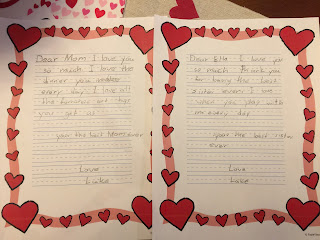 Dear Mom I love you
so much I love the
dinner you
every day. I love all
the
you get us.
your the best Mom ever
Love
Luke
Dear Ella I love you
so much. thank you
for being the best
sister ever. I love
when you play with
me every day
your the best sister
ever
Love
Luke